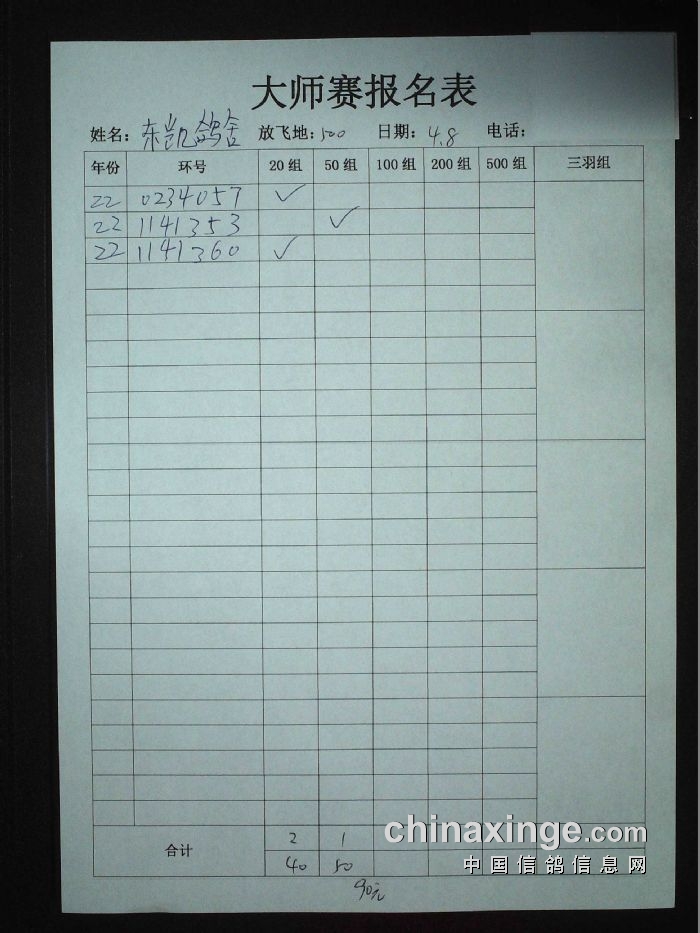 大师赛报名表
姓名: 东凯鸽舍 放飞地: 500 日期: 4.8 电话:
年份 环号 20 组 50 组 100 组 200 组 500 组 三羽组
22 0234057 ✓
22 1141353 ✓
22 1141360 ✓
合计 2 1
40 50
90元
chinaxinge.com
中国信鸽信息网